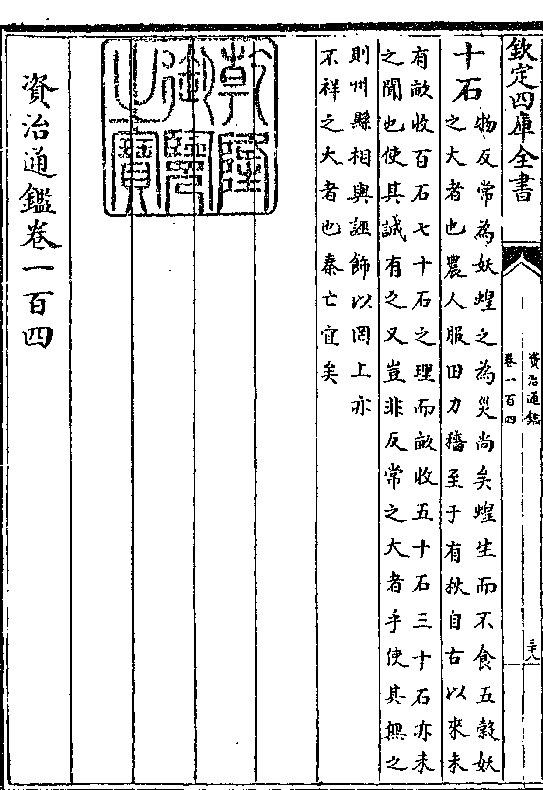 欽定四庫全書
資治通鑑
卷一百四
三十八
十石物反常為妖蝗之為災尚矣蝗生而不食五穀妖
之大者也農人服田力穡至于有秋自古以來未
有畝收百石七十石之理而畝收五十石三十石亦未
之聞也使其誠有之又豈非反常之大者乎使其無之
則州縣相與誣飾以罔上亦
不祥之大者也秦亡宜矣
乾隆御覽之寶
資治通鑑卷一百四